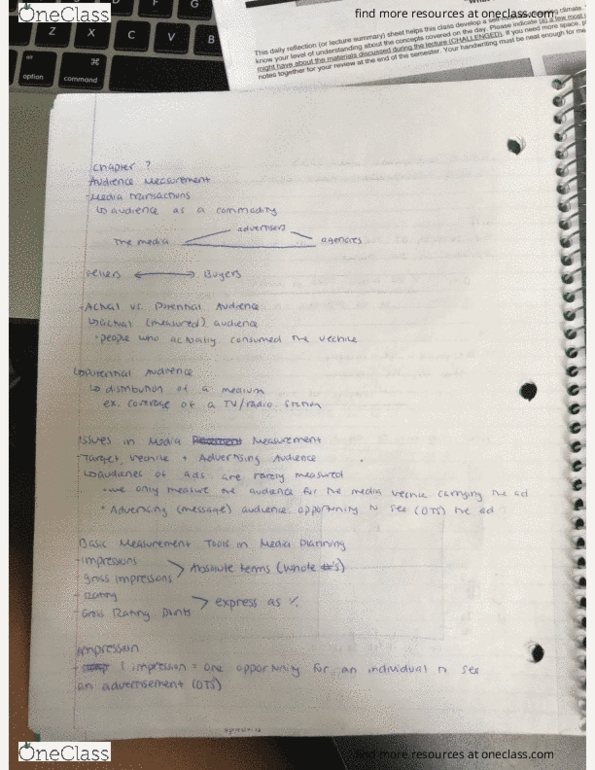 OneClass
find more resources at oneclass.com
Z X C V B
option command
This daily reflection (or lecture summary) sheet helps this class develop a climate.
know your level of understanding about the concepts covered on the day. Please indicate
might have about the materials discussed during the lecture (CHALLENGED). If you need more space,
notes together for your review at the end of the semester. Your handwriting must be neat enough for me
Chapter 7
Audience Measurement
-Media transactions
↳ audience as a commodity
advertisers
The media agencies
sellers ⟷ Buyers
-Actual vs. Potential Audience
↳ actual (measured) audience
• people who actually consumed the vechile
↳ potential Audience
↳ distribution of a medium
ex. coverage of a TV/radio station
Issues in Media Measurement
-Target, vechile + Advertising Audience
↳ audiences of ads are rarely measured
• we only measure the audience for the media vechile carrying the ad
• Advertising (message) audience: opportunity to see (OTS) the ad
Basic Measurement Tools in Media Planning
-impressions
gross impressions > Absolute terms (whole #'s)
-Rating
Gross Rating Points > express as %
impression
- 1 impression = one opportunity for an individual to see
an advertisement (OTS)
OneClass
find more resources at oneclass.com